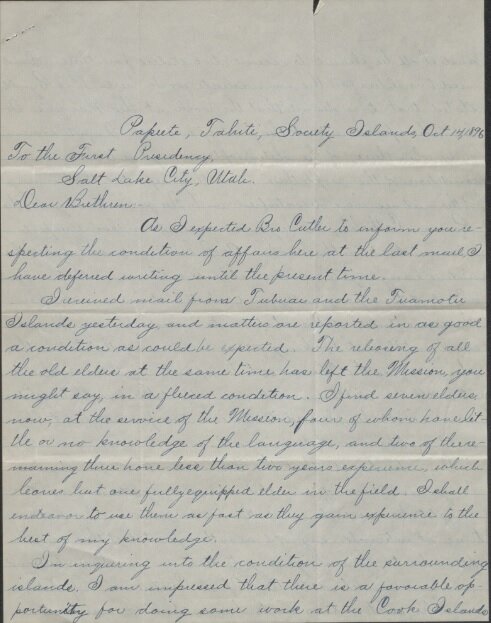 Papeete, Tahiti, Society Islands, Oct 14, 1896
To the First Presidency,
Salt Lake City, Utah.
Dear Brethren:-
As I expected Bro. Cutler to inform you re-
specting the condition of affairs here at the last mail, I
have deferred writing until the present time.
I received mail from Tubuai and the Tuamotu
Islands yesterday, and matters are reported in as good
a condition as could be expected. The releasing of all
the old elders at the same time has left the Mission, you
might say, in a fleeced condition. I find seven elders
now, at the service of the Mission, four of whom have lit-
tle or no knowledge of the language, and two of the re-
maining three have less than two years experience, which
leaves but one fully equipped elder in the field. I shall
endeavor to use them as fast as they gain experience to the
best of my knowledge.
In inquiring into the condition of the surrounding
islands, I am impressed that there is a favorable op-
portunity for doing some work at the Cook Islands